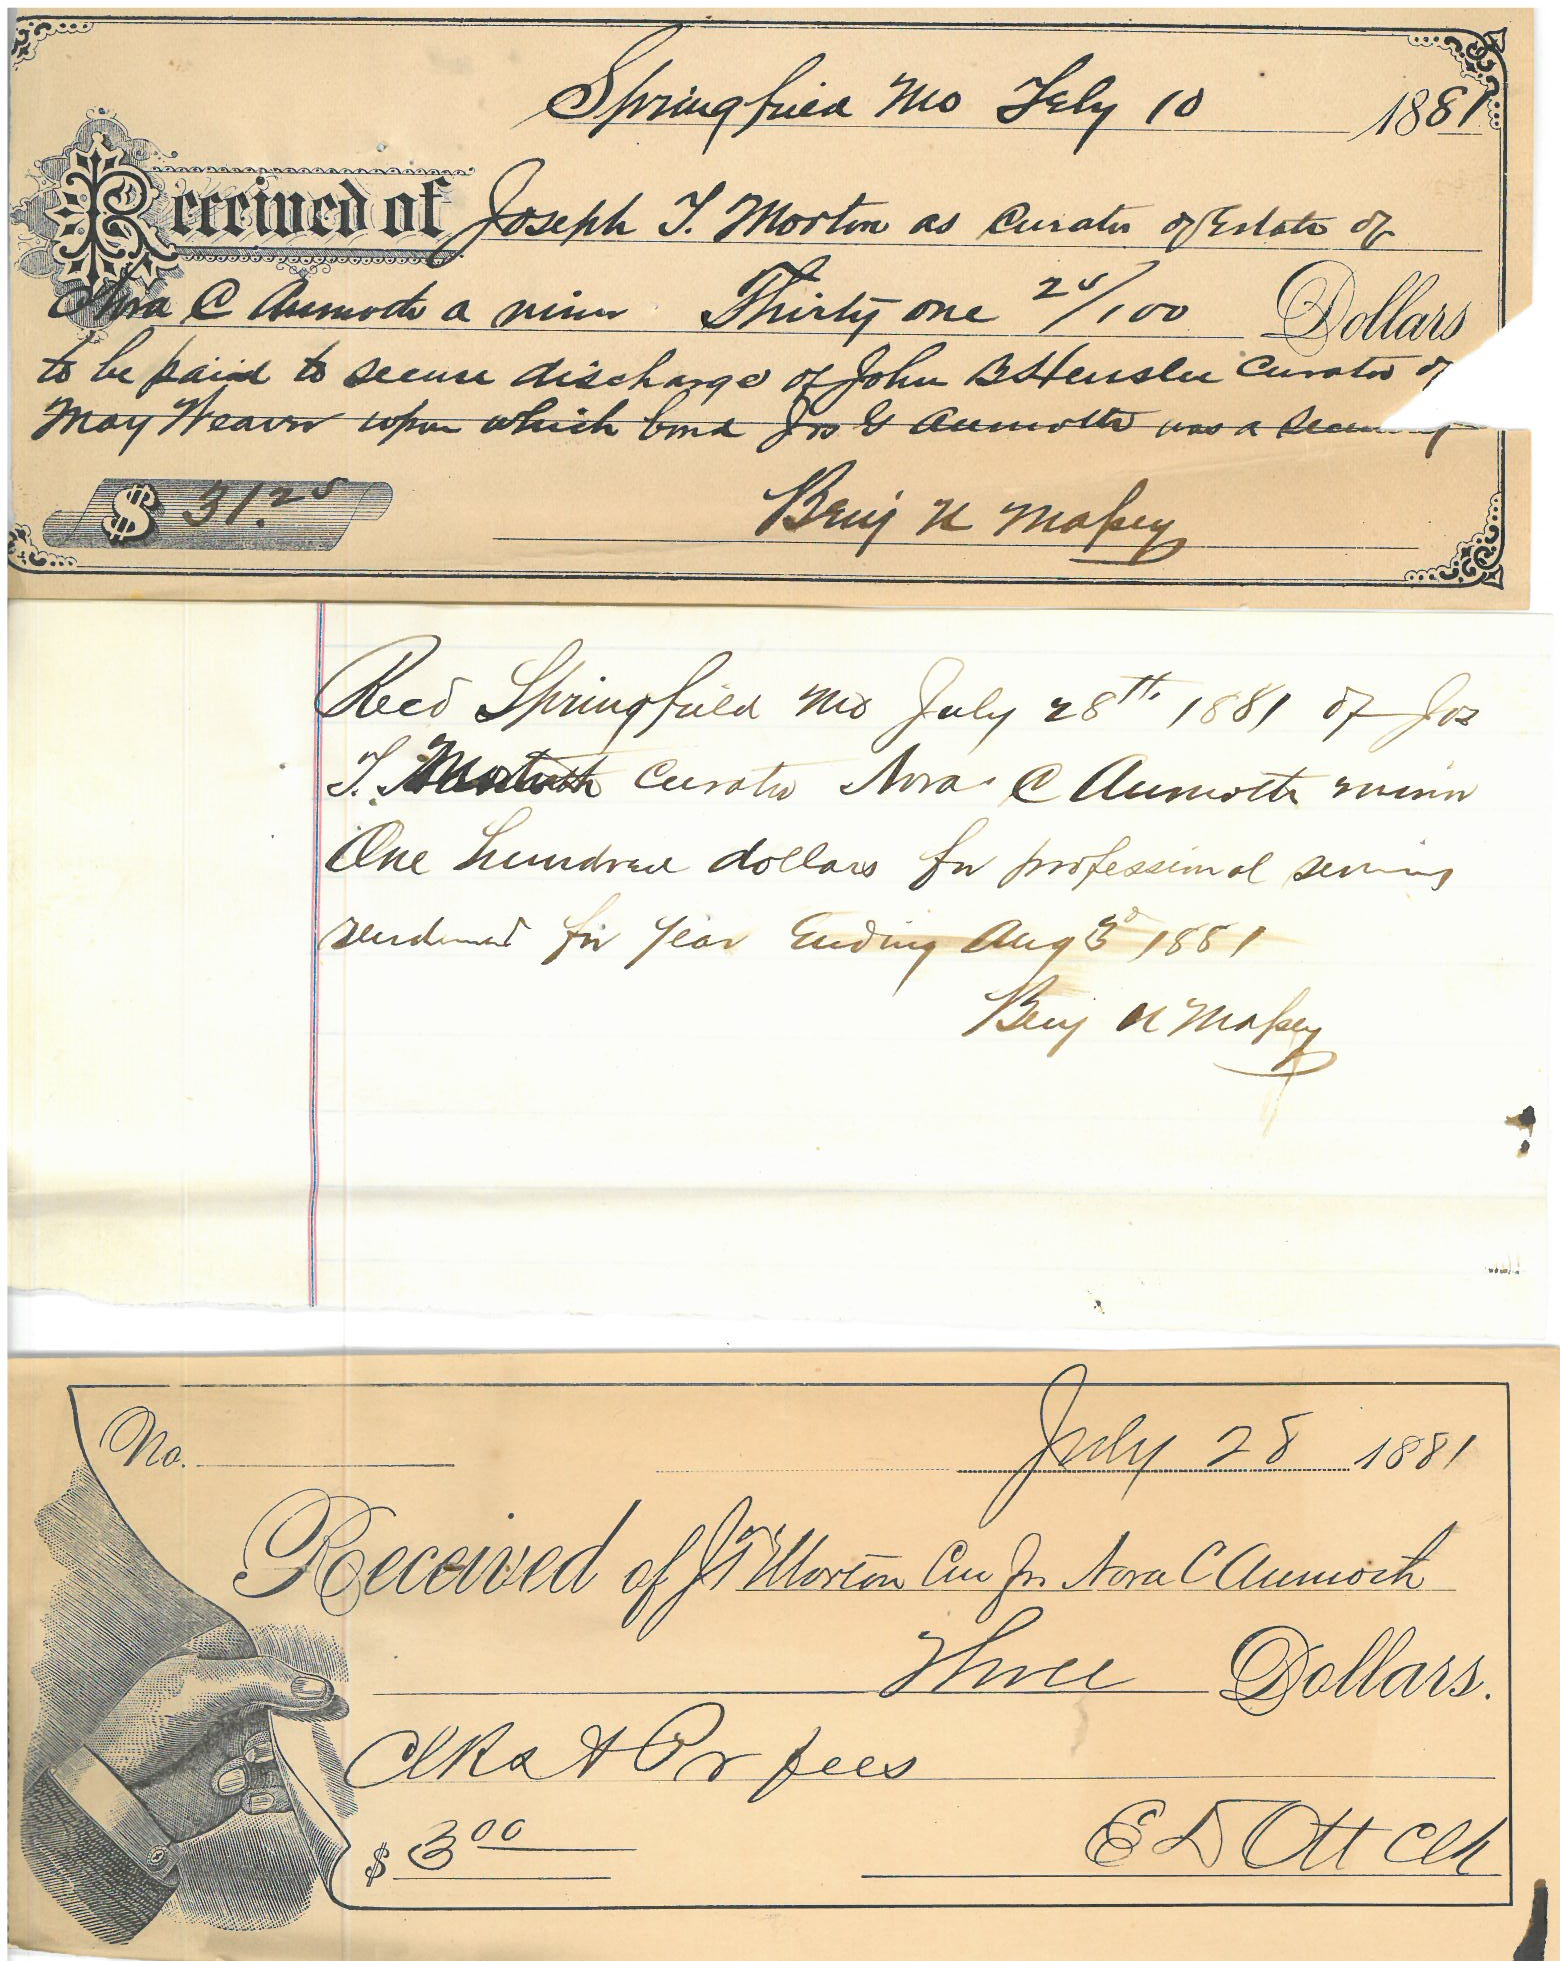 Springfield Mo Feby 10 1881
Received of Joseph T. Morton as Curator of Estate of
Nora C Aumoth a minor Thirty one 25/100 Dollars
to be paid to secure discharge of John B Hensler Curator of
May Weaver upon which bond Jos G Aumoth was a
$ 31.25 Benj U Massey
Recd Springfield Mo July 28th 1881 of Jos
T. Curator Nora C Aumoth minor
One hundred dollars for professional services
rendered for year Ending Aug 3d 1881
Benj U Massey
No. July 28 1881
Received of J T Morton Cu for Nora C Aumoth
Three Dollars.
Clks & Pr fees
$ 3 00 E D Ott Clk